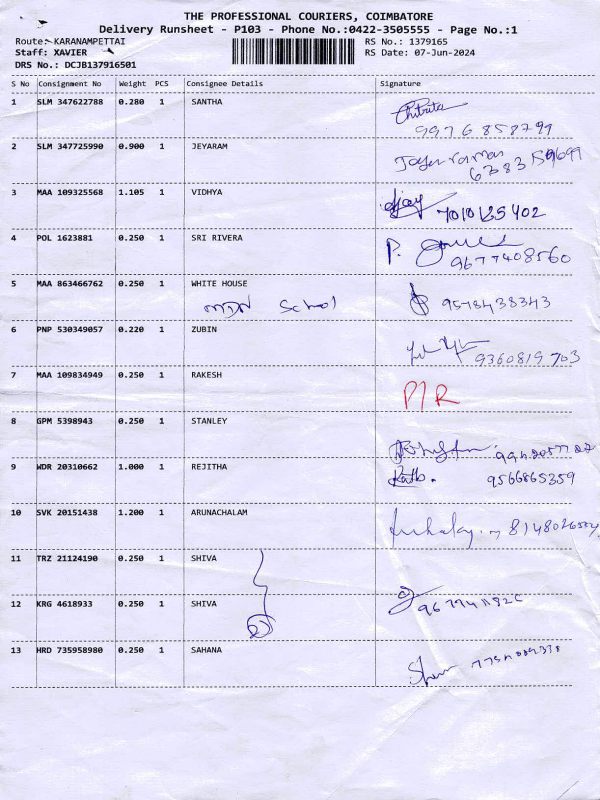 THE PROFESSIONAL COURIERS, COIMBATORE
Delivery Runsheet - P103 - Phone No.:0422-3505555 - Page No.:1
Route:- KARANAMPETTAI RS No.: 1379165
Staff: XAVIER RS Date: 07-Jun-2024
DRS No.: DCJB137916501
S No Consignment No Weight PCS Consignee Details Signature
1 SLM 347622788 0.280 1 SANTHA
9976858799
2 SLM 347725990 0.900 1 JEYARAM
3 MAA 109325568 1.105 1 VIDHYA
7010135402
4 POL 1623881 0.250 1 SRI RIVERA
9677408560
5 MAA 863466762 0.250 1 WHITE HOUSE
School 9578438343
6 PNP 530349057 0.220 1 ZUBIN
9360819703
7 MAA 109834949 0.250 1 RAKESH
P/R
8 GPM 5398943 0.250 1 STANLEY
9 WDR 20310662 1.000 1 REJITHA
9566865359
10 SVK 20151438 1.200 1 ARUNACHALAM
11 TRZ 21124190 0.250 1 SHIVA
12 KRG 4618933 0.250 1 SHIVA
13 HRD 735958980 0.250 1 SAHANA